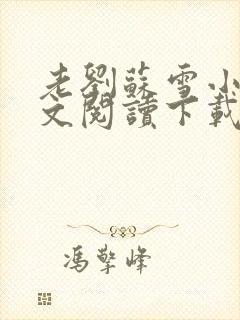 老劉蘇雪小
文閱讀下載
馮擎峰